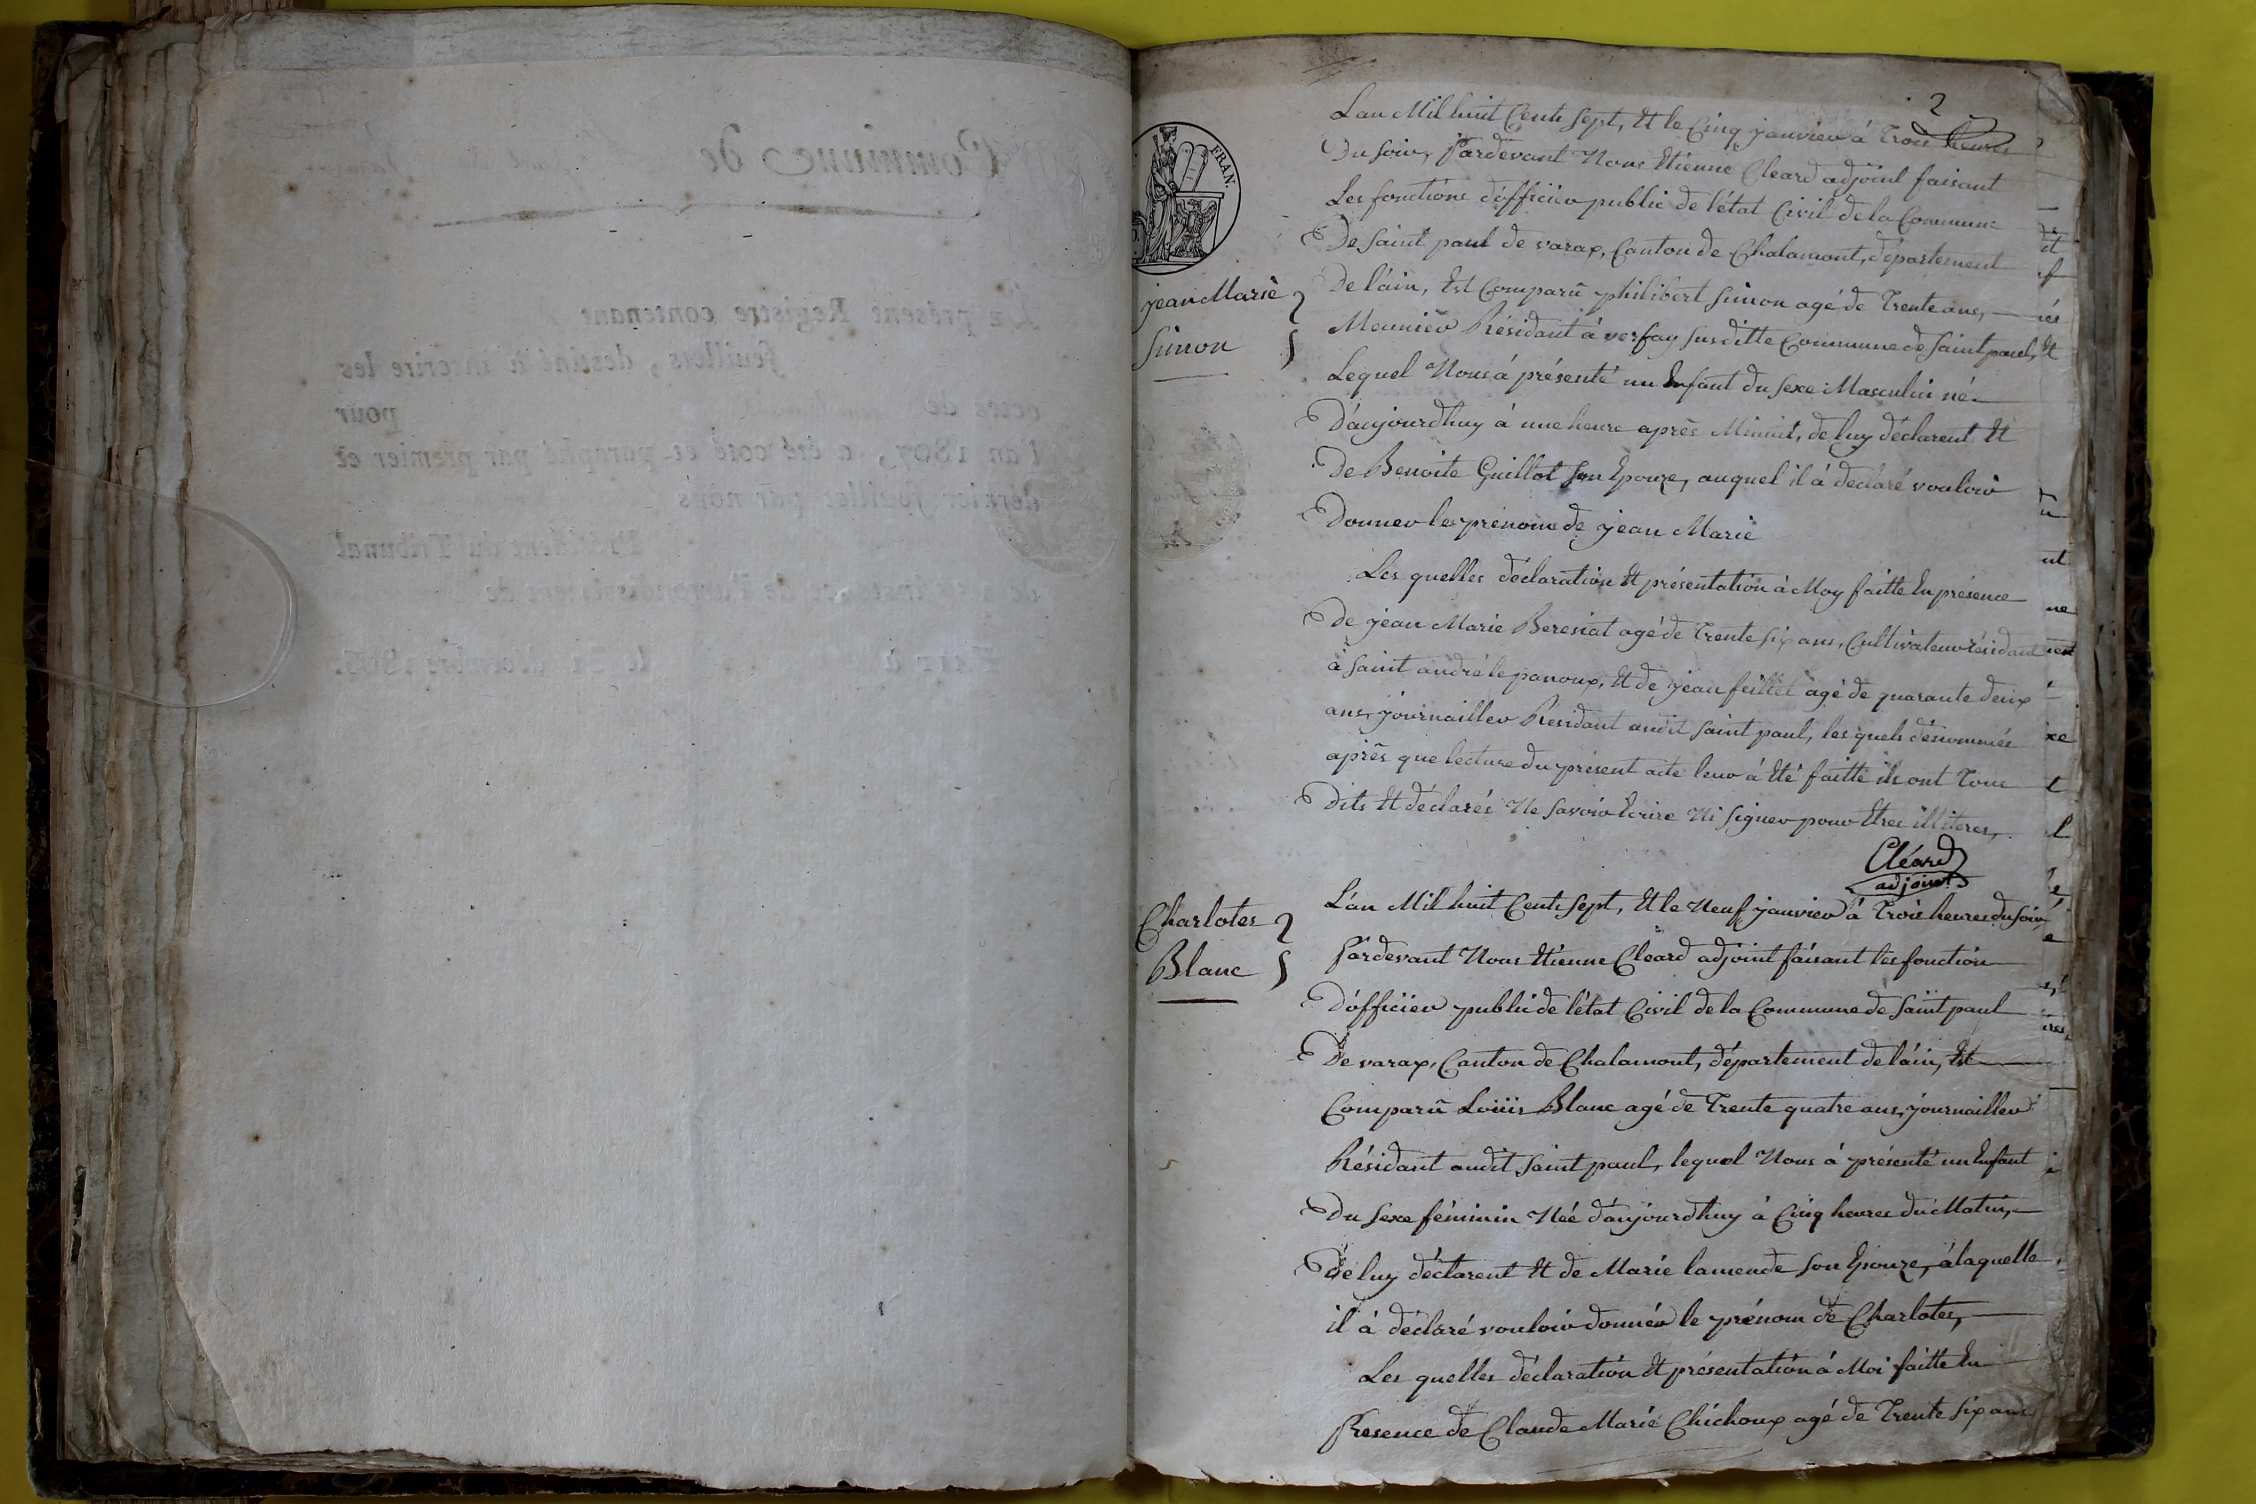 2
L'an Mil huit Cents Sept, Et le Cinq janvier à Trois heures
Du Soir, Pardevant Nous Etienne Cleard adjoint faisant
Les fonctions d'officier public de l'état Civil de la Commune
De Saint paul de varax, Canton de Chalamont, département
De l'ain, Est Comparû philibert Simon agé de Trente ans,
Meunier Résidant à verfay susditte Commune de Saint paul,
Lequel Nous à présenté un Enfant du Sexe Masculin né
D'aujourdhuy à une heure après Minuit, de luy déclarent Et
De Benoite Guillot Son Epouze, auquel il à déclaré vouloir
Donner les prénoms de jean Marie
Les quelles déclaration Et présentation à Moy faitte En présence
De jean Marie Beresiat agé de Trente Six ans, Cultivateur résidant
à Saint andré le panoux, Et de jean feillet agé de quarante deux
ans, journaillier Résidant audit Saint paul, les quels dénommés
après que lecture du présent acte leur à Eté faitte ils ont Tous
Dits Et déclarés Ne Savoir Ecrire Ni Signer pour Etres illiteres,
Cléard
adjoint
jean Marie
Simon
L'an Mil huit Cents Sept, Et le Neuf janvier à Trois heures du Soir,
Pardevant Nous Etienne Cleard adjoint faisant les fonction
D'officier public de l'état Civil de la Commune de Saint paul
De varax, Canton de Chalamont, département de l'ain, Est
Comparû Loüis Blanc agé de Trente quatre ans, journaillier
Résidant audit Saint paul, lequel Nous à présenté un Enfant
Du Sexe féminin Née d'aujourdhuy à Cinq heures du Matin,
De luy déclarent Et de Marie lamende Son Epouze, à laquelle
il à déclaré vouloir donner le prénom de Charlotes,
Les quelles déclaration Et présentation à Moi faitte En
Presence de Claude Marie Chichoux agé de Trente Six ans
Charlotes
Blanc
FRAN.